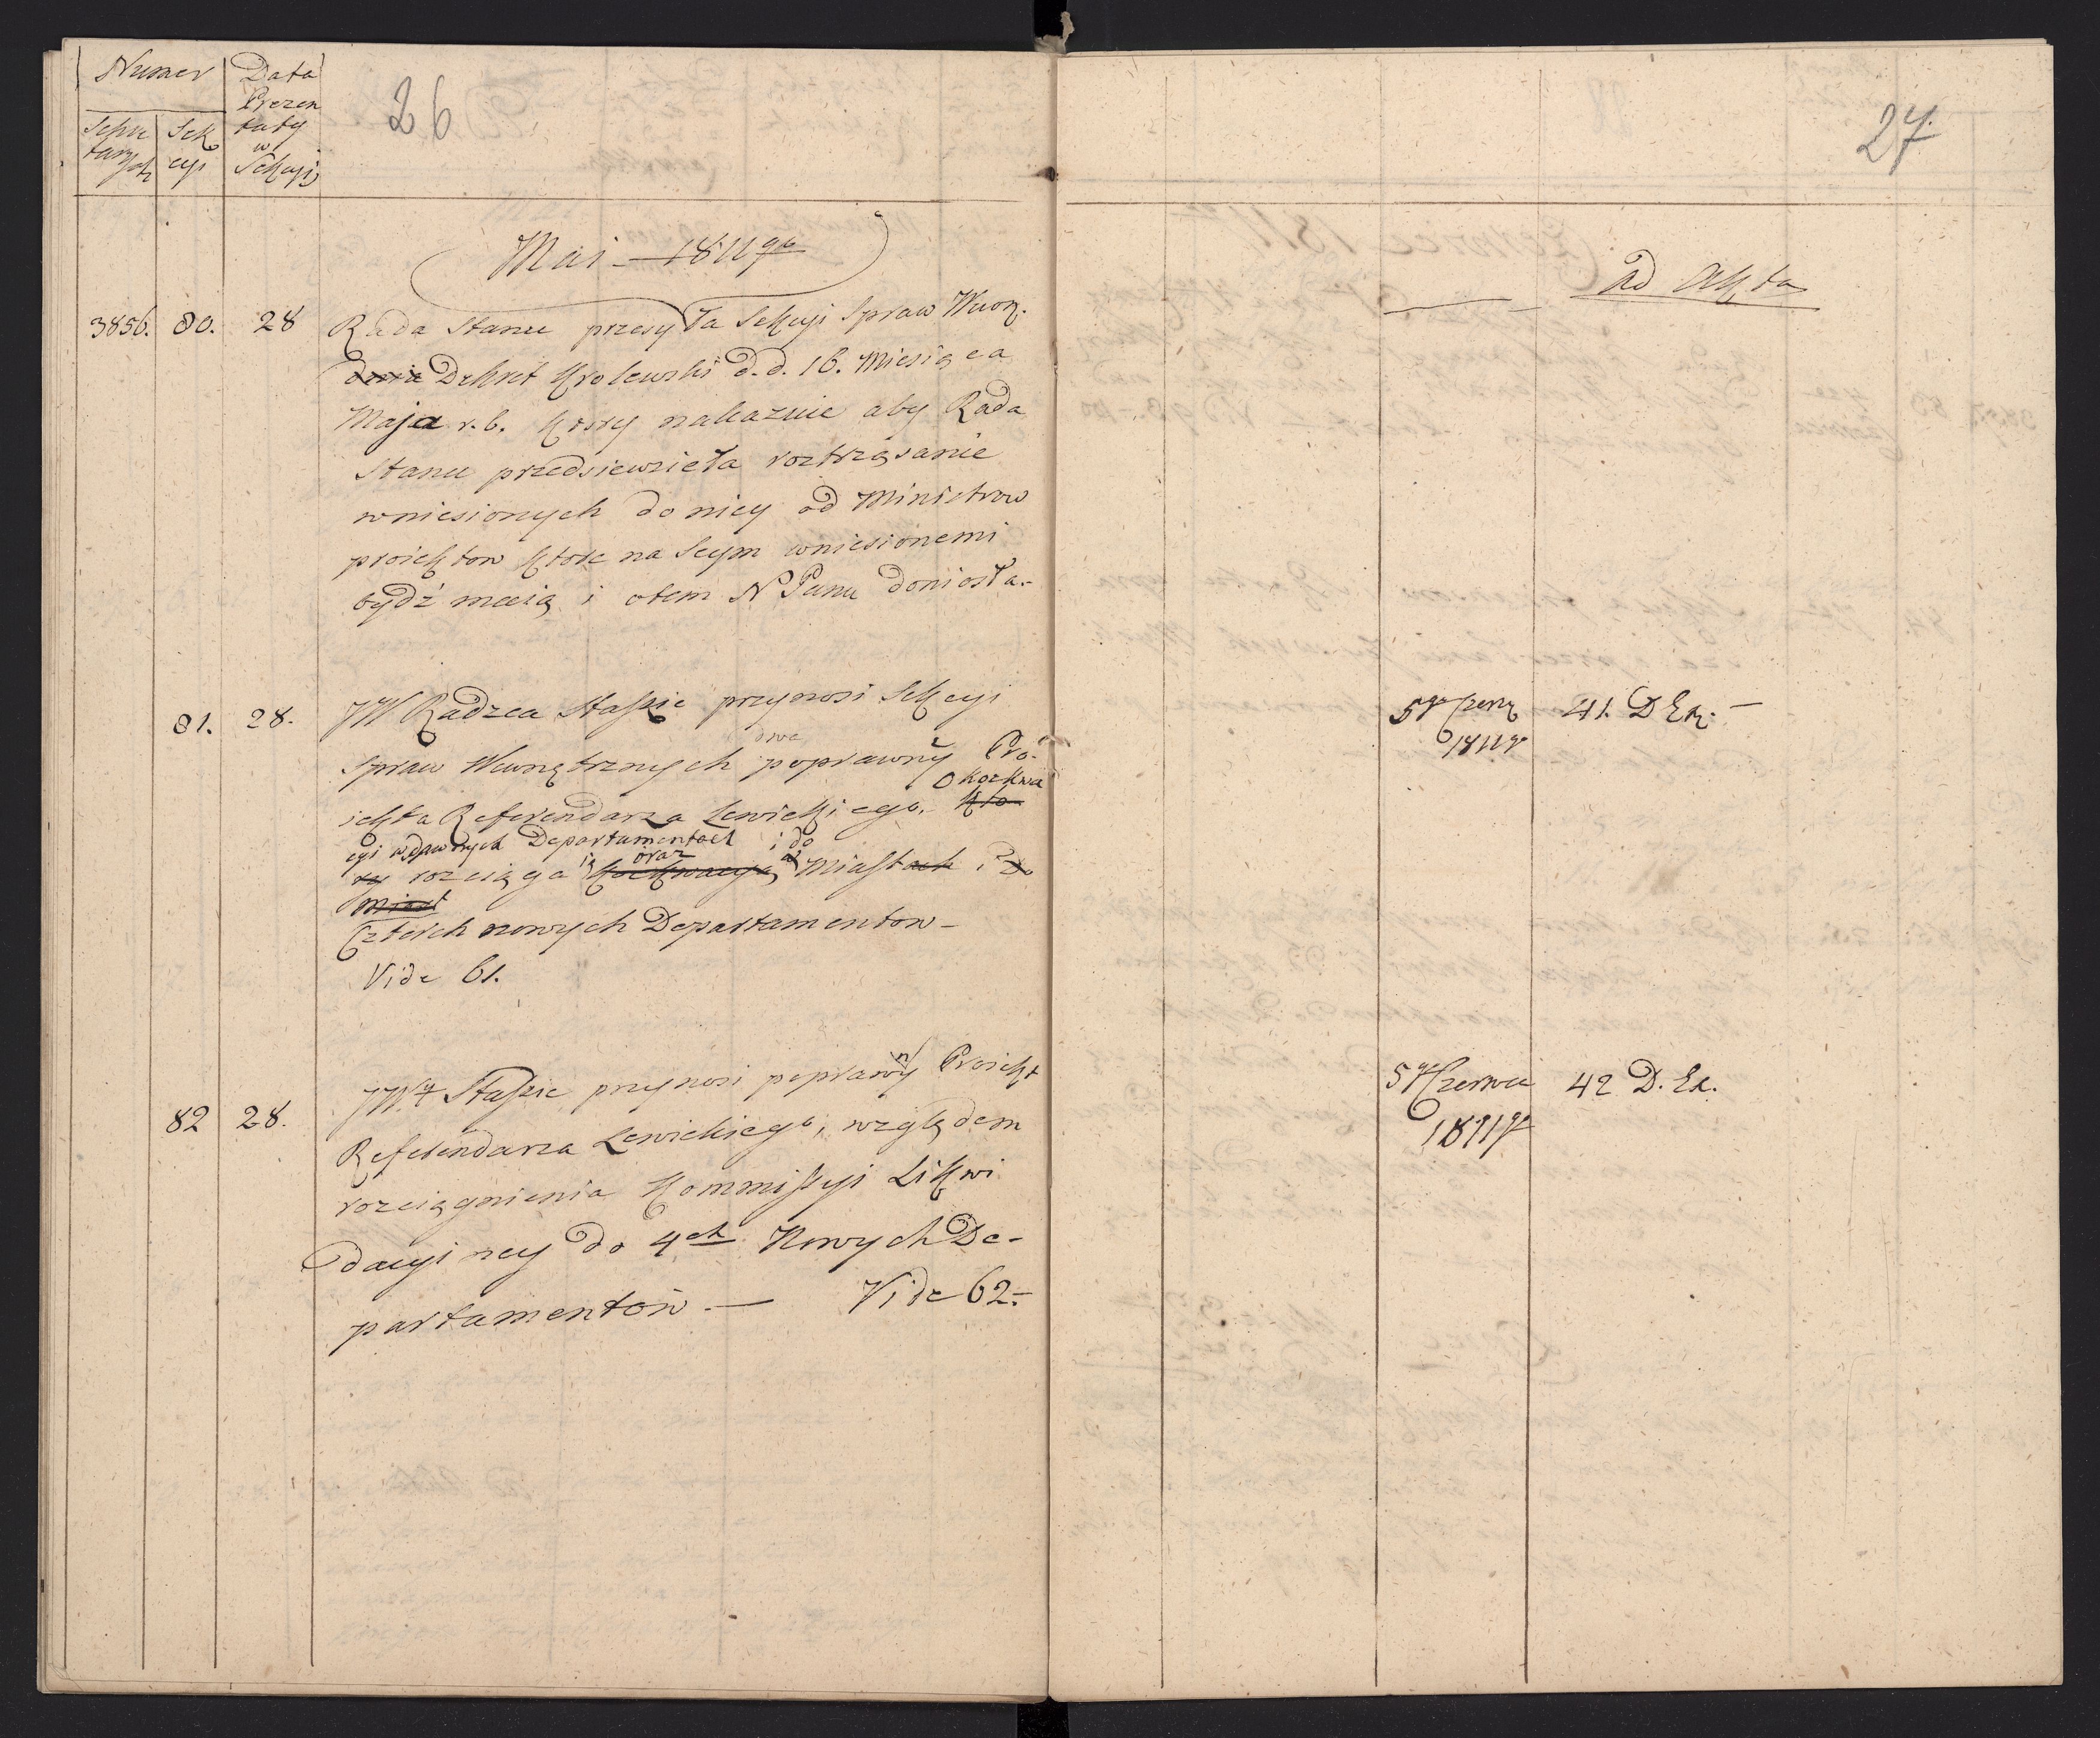 Numer
Data
Prezen
taty
w
Sekcyi
Sekre
taryatu
Sek
cyi
26
Mai 1811 go
3856. 80. 28 Rada Stanu przesyła Sekcyi Spraw Wwn.
Dekret Krolewski d.d. 16. Miesiąca
Maja r.b. ktory nakazuie aby Rada
Stanu przedsiewzieła roztrząsanie
wniesionych do niey od Ministrow
proiektow ktore na Seym wniesionemi
bydź maią i otem N Panu doniosła.-
81. 28. JW Radzca Staszic przynosi Sekcyi
dwa
Spraw Wewnętrznych poprawny Pro-
O Kozkwa
iekta Referendarza Lewickiego. Kto
cyi w dawnych Departamentach i do
ią oraz
ry rozciąga Miastach i Do
Miast
Czterch nowych Departamentow -
Vide 61.
82 28. JW. Staszic przynosi poprawny Proiekt
Referendarza Lewickiego, względem
rozciągnienia Kommissyi Likwi
dacyiney do 4ch Nowych De-
partamentow — Vide 62.-
27.
ad Akta
5 go Czerw 41. D Ex. -
1811 r
5 go Czerwca 42 D. Ex.
1811 r